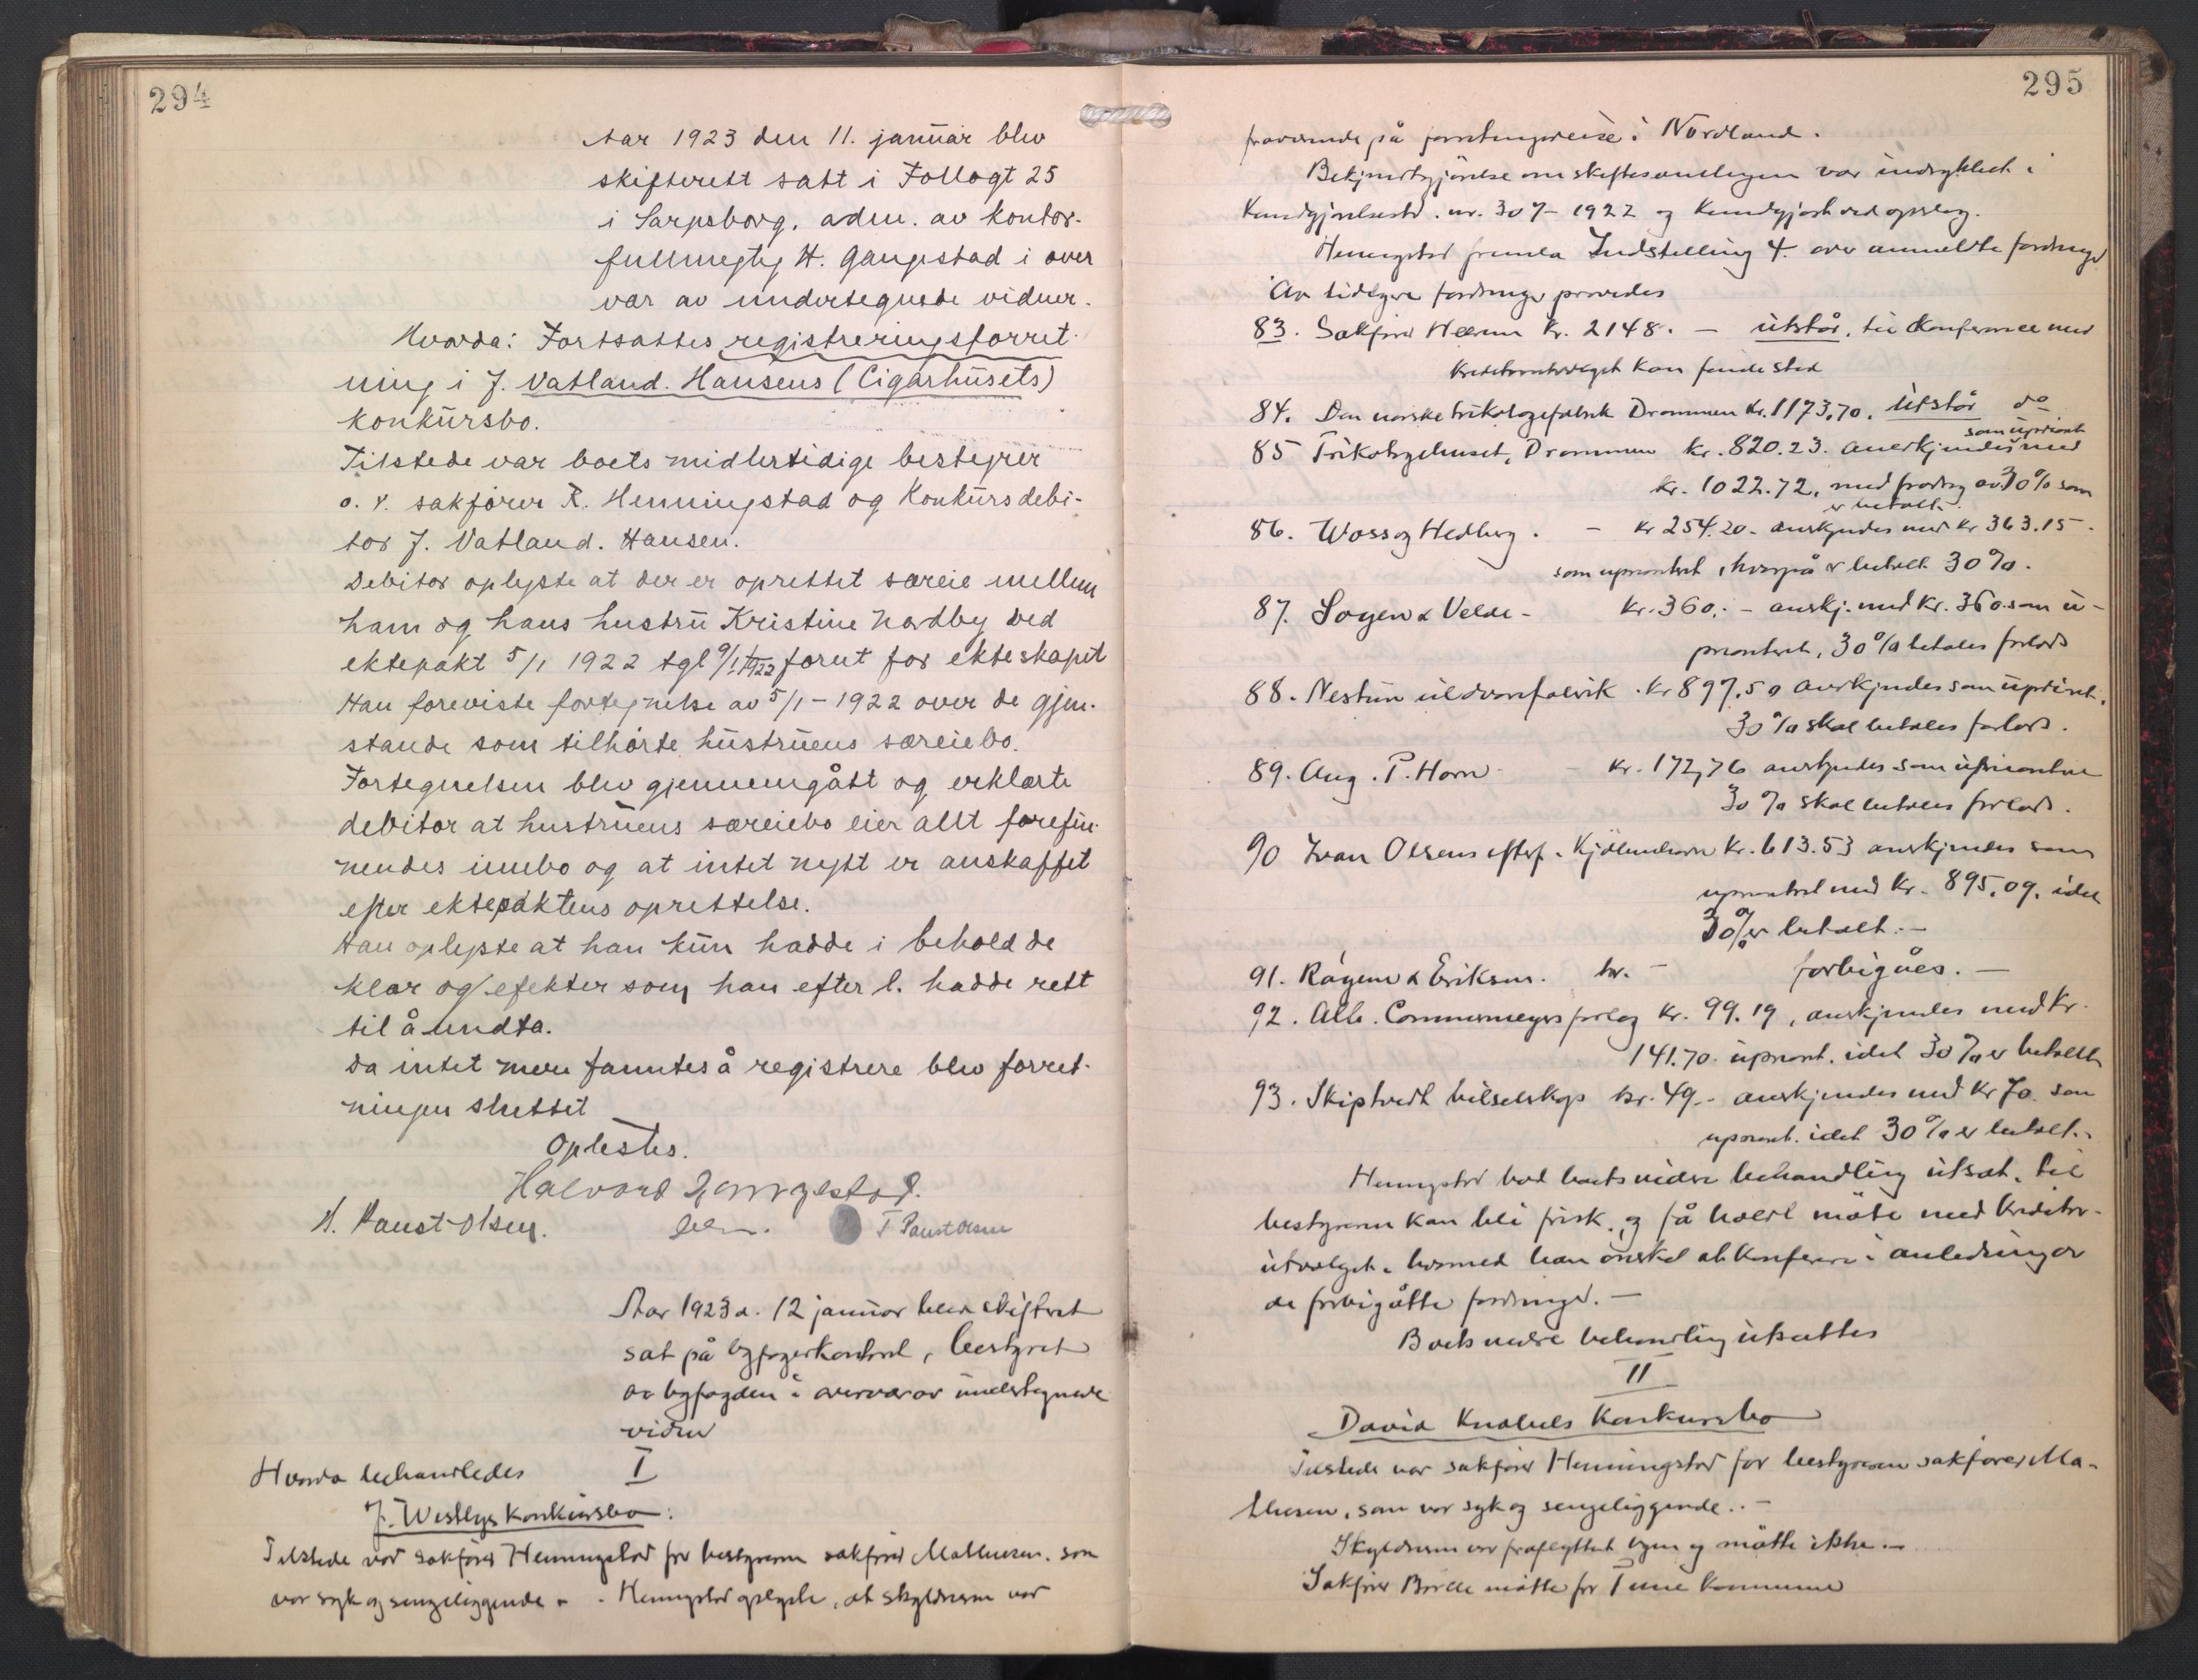 294
Aar 1923 den 11. januar blev
skifterett satt i Follogt 25
i Sarpsborg, adm. av kontor-
fullmegtig H. Gangestad i over
vær av undertegnede vidner.
Hvorda: Fortsattes registreringsforret-
ning i J. Vatland. Hansens (Cigarhusets)
konkursbo.
Tilstede var boets midlertidige bestyrer
o. r. sakfører R. Henningstad og Konkursdebi-
tor J. Vatland. Hansen.
Debitor oplyste at der er oprettet særeie mellem
ham og hans hustru Kristine Nordby ved
ektepakt 5/1 1922 tgl 9/1 1922 forut for ekteskapet
Han foreviste fortegnelse av 5/1 - 1922 over de gjen-
stande som tilhørte hustruens særeiebo.
Fortegnelsen blev gjennemgått og erklærte
debitor at hustruens særeiebo eier allt forefin-
nendes innbo og at intet nytt er anskaffet
efter ektepaktens oprettelse.
Han oplyste at han kun hadde i behold de
klær og efekter som han efter l. hadde rett
til å undta.
Da intet mere fanntes å registrere blev forret-
ningen sluttet
Oplestes.
Halvard Gangestad.
H. Paust-Olsen. T Paust Olsen
Aar 1923 d. 12 januar blev skifteret
sat på byfogedkontoret, bestyret
av byfogden i overvær av undertegnede
vidner
Hvorda behandledes I
J. Westbys konkursbo:
Tilstede var sakfører Henningstad for bestyreren sakfører Mathiesen, som
var syk og sengeliggende. - Henningstad oplyste, at skyldneren var
295
fraværende på forretningsreise i Nordland.
Bekjentgjørelse om skiftesamlingen var indrykket i
Kundgjørelsestid. nr. 307 - 1922 og kundgjort ved opslag.
Henningstad fremla Indstilling 4 over anmeldte fordringer
Av tidligere fordringer prøvedes
83. Sakfører Heerum kr. 2148. - utstår, til konferance med
kreditorutvalget kan finde sted
84. Den norske trikotagefabrik Drammen kr. 1173,70. Utstår do
85 Trikotagehuset, Drammen kr. 820.23. anerkjendes som uprioritert med
kr. 1022.72, med fradrag av 30% som
er betalt.
86. Woss og Hedberg. - kr 254.20 - anerkjendes med kr 363.15 -
som uprioritert, hvorpå er betalt 30%.
87. Sogen & Velde - kr. 360. - anerkj. med kr. 360. som u-
prioritert, 30% betales forlods
88. Nestun uldvarefabrik. kr 897.50 anerkjendes som upriorit.
30% skal betales forlods.
89. Aug. P. Horn kr. 172,76 anerkjendes som uprioritert
30% skal betales forlods.
90 Ivan Olsens efterf. Kjøbenhavn kr. 613.53 anerkjendes som
uprioritert med kr. 895,09, idet
30% er betalt. -
91. Røyem & Eriksen. kr. - forbigåes. -
92. Alb. Cammermeyers forlag kr. 99.19, anerkjendes med kr.
141.70 upriorit. idet 30% er betalt
93. Skiptvedt bilselskap kr. 49. - anerkjendes med kr 70. som
upriorit. idet 30% er betalt. -
Henningstad bad boets videre behandling utsat, til
bestyreren kan bli frisk, og få holdt møte med kreditor-
utvalget, hvormed han ønsket at konferere i anledning av
de forbigåtte fordringer. -
Boets videre behandling utsattes
II
David Knabels Konkursbo
Tilstede var sakfører Henningstad for bestyreren sakfører Ma-
thiesen, som var syk og sengeliggende. -
Skyldneren var fraflyttet byen og møtte ikke. -
Sakfører Borch møtte for Tune kommune